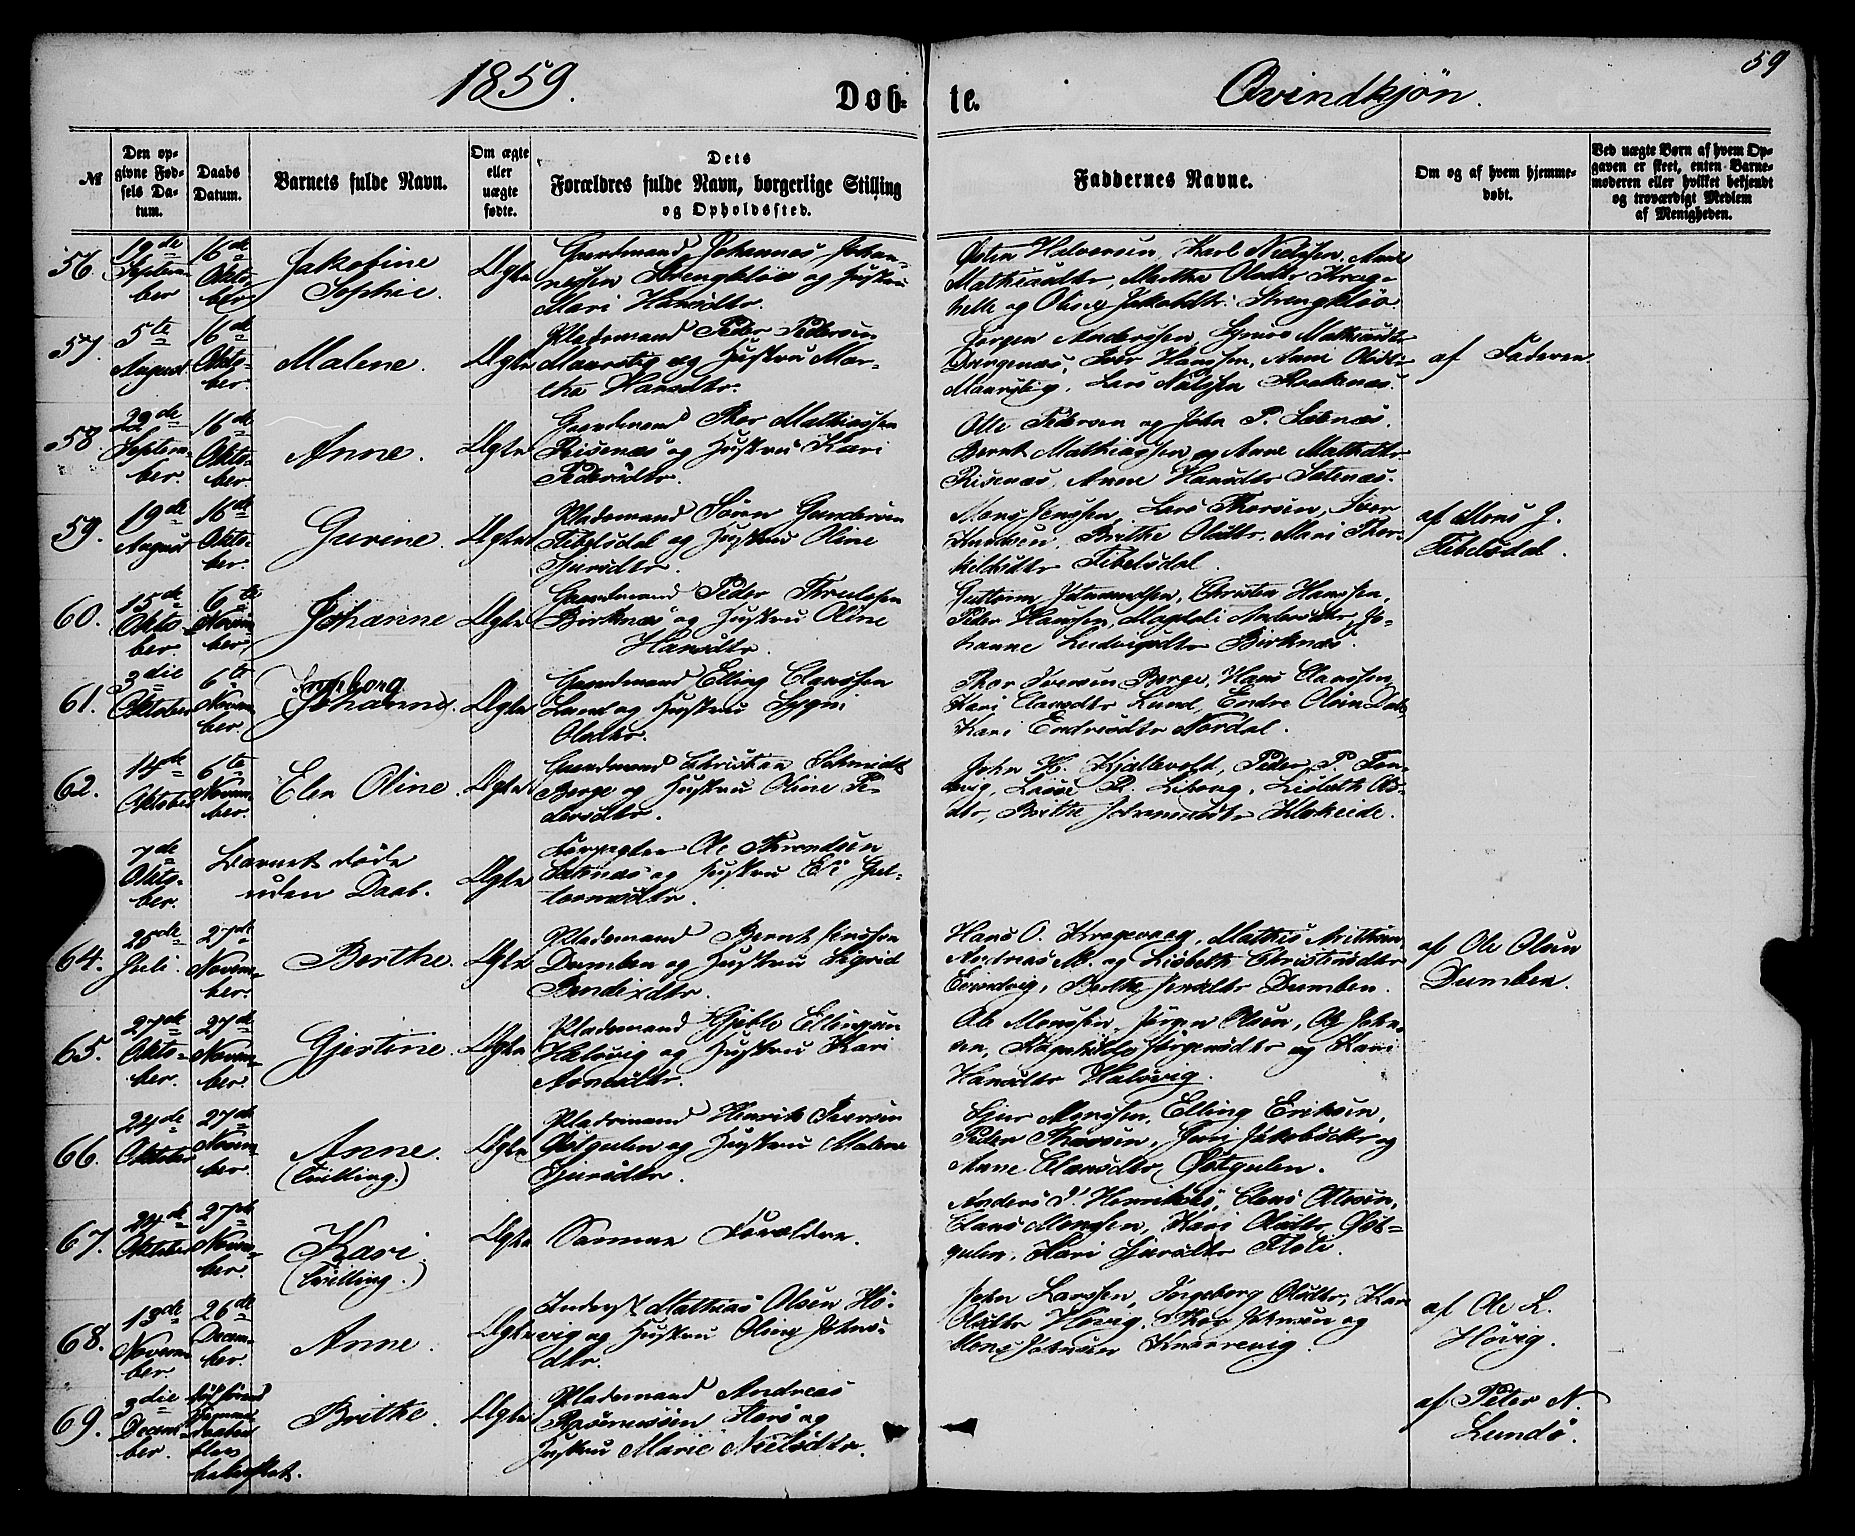 59
1859. Døb- te. Øvindkjøn.
№
Den op-
givne Fød-
sels Da-
tum.
Daabs
Datum.
Barnets fulde Navn.
Om ægte
eller
uægte
fødte.
Dets
Forældres fulde Navn, borgerlige Stilling
og Opholdssted.
Faddernes Navne.
Om og af hvem hjemme-
døbt.
Ved uægte Børn af hvem Op-
gaven er skeet, enten Barne-
moderen eller hvilket bekjendt
og troværdigt Medlem
af Menigheden.
56.
19de
Septem-
ber
16de
Okto-
ber
Jakofine
Sophie.
Ægte
Gaardmand Johannes Johan-
nessen Strengkløv og Hustru
Mari Hansdtr.
Østen Halvorsen, Karl Nielssen, Anne
Mathiasdtr, Martha Olsdtr
og Oline Jakobdtr. Strengkløv
57.
5te
August
16de
Okto-
ber.
Malene.
Ægte
Pladsmand Peder Pedersen
Maurstig og Hustru Mar-
tha Hansdtr.
Jørgen Anderssen,
Iver Hanssen, Anne
Maurstig, Lars Nielssen
af Faderen
58
22de
Septem-
ber.
16de
Okto-
ber
Anne.
Ægte
Gaardmand Thor Mathiassen
Risenæs og Hustru Kari
Pedersdtr.
Ole Pedersen og John P. Sætenæs.
Bernt Mathiassen og Anne Mathdtr
Risenæs, Anne Hansdtr Sætenæs.
59.
19de
August
16de
Okto-
ber.
Gurine.
Ægte
Pladsmand Søren Gundersen
Tibelsdal og Hustru Oline
Sjursdtr.
Mons Jenssen, Lars Thorsen, Iver
Brithe Olsdtr. Mari Thor-
kildsdtr Tibelsdal.
af Mons J.
Tibelsdal.
60.
15de
Okto-
ber.
6te
Novem-
ber
Johanne
Ægte
Gaardmand Peder Thrulssen
Birknæs og Hustru Oline
Hansdtr.
Guttorm Christen Hanssen,
Peder Hanssen, Magdeli Andersdtr, Jo-
hanne Ludvigsdtr Birknæs.
61.
3die
Oktober
6te
Novem-
ber.
Ingeborg
(Johanne).
Ægte
Gaardmand Elling Clausen
Lund og Hustru Sygni
Olsdtr.
Thor Iversen Berge, Hans Claussen,
Kari Clausdtr Lund, Endre
Kari Endresdtr Nordal.
62.
14de
Oktober
6te
Novem-
ber.
Elen Oline.
Ægte
Gaardmand Christian Schmidt
Berge og Hustru Oline Pe-
dersdtr.
John H. Kjellevold, Peder P.
Lisbeth
dtr, Brithe Johannesdtr Klokeide.
7de
Okto-
ber.
Barnet døde
uden Daab.
Ægte
Forpagter Ole
Sætenæs og Hustru Eli Gut-
tormsdtr.
64.
25de
Juli.
27de
Novem-
ber.
Berthe.
Ægte
Pladsmand Bernt Jenssen
Dumben og Hustru Sigrid
Bendixdtr.
Hans O. Kragevaag, Mathis
Andreas M. og Lisbeth Christensdtr
Eivindvig, Berthe Jensdtr Dumben.
af Ole Olsen
Dumben.
65.
27de
Okto-
ber.
27de
Novem-
ber.
Gjertine.
Ægte
Pladsmand Gjetle Ellingsen
Halsvig og Hustru Kari
Arnesdtr.
Ole Monssen, Jørgen Olsen, Ole John-
sen, Ragnhilde Jørgensdtr og Kari
Hansdtr Halsvig.
66.
24de
Oktober
27de
Novem-
ber.
Anne.
(Tvilling.)
Ægte
Pladsmand Henrik Iversen
Østgulen og Hustru Malene
Sjursdtr.
Sjur Monssen, Elling Eriksen,
Peder Thorsen, Jakobsdtr og
Anne Clausdtr Østgulen.
67.
24de
Oktober
27de
Novem-
ber.
Kari
(Tvilling.)
Ægte
Samme Forældre.
Anders Claus Olsen,
Claus Monssen, Kari Olsdtr Øst-
gulen, Kari Sjursdtr Floli.
68.
13de
Novem-
ber
26de
Decem-
ber.
Anne.
Ægte
Inderst Mathias Olsen Hø-
vig og Hustru Oline Johns-
dtr.
John Larssen, Ingeborg Olsdtr, Kari
Olsdtr Høvig, Thor Johnsen og
Mons Johnsen Knarrevig.
af Ole L.
Høvig.
69.
3die
Decem-
ber.
død førend
Hjemme-
daaben
blev
bekræftet.
Brithe.
Ægte
Pladsmand Andreas
Rasmussen og
Hustru Marie Nielsdtr.
af Peter N.
Lundø.